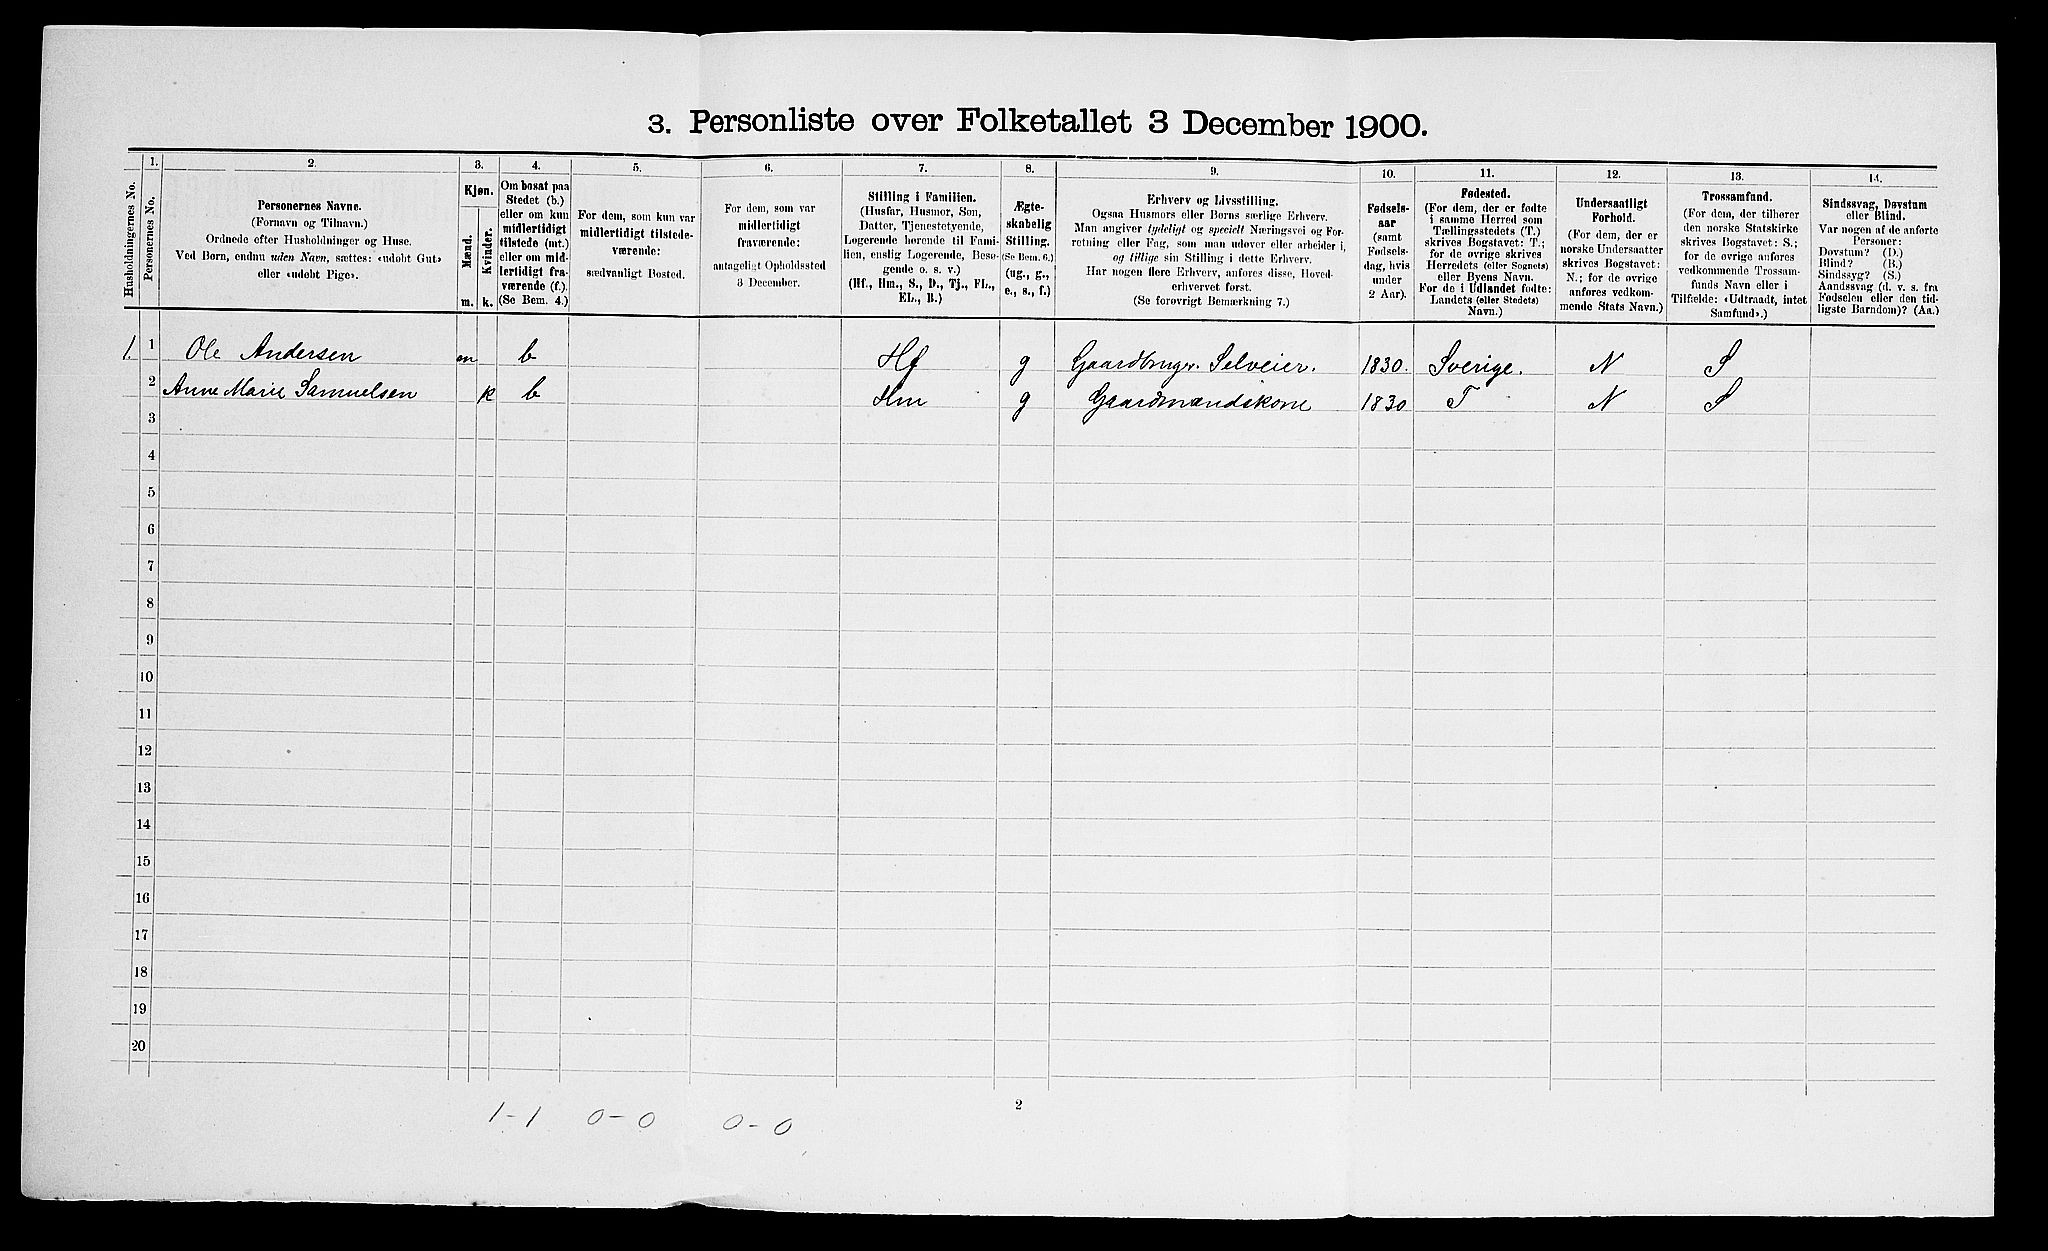 3. Personliste over Folketallet 3 December 1900.
1. 2. 3. 4. 5. 6. 7. 8. 9. 10. 11. 12. 13. 14.
Husholdningernes No.
Personernes No.
Personernes Navne.
(Fornavn og Tilnavn.)
Ordnede efter Husholdninger og Huse.
Ved Børn, endnu uden Navn, sættes: «udøbt Gut»
eller «udøbt Pige».
Kjøn.
Mænd.
Kvinder.
m. k.
Om bosat paa
Stedet (b.)
eller om kun
midlertidigt
tilstede (mt.)
eller om mid-
lertidigt fra-
værende (f.).
(Se Bem. 4.)
For dem, som kun var
midlertidigt tilstede-
værende:
sædvanligt Bosted.
For dem, som var
midlertidigt
fraværende:
antageligt Opholdssted
3 December.
Stilling i Familien.
(Husfar, Husmor, Søn,
Datter, Tjenestetyende,
Logerende hørende til Fami-
lien, enslig Logerende, Besø-
gende o. s. v.)
(Hf., Hm., S., D., Tj., FL.,
EL., B.)
Ægte-
skabelig
Stilling.
(Se Bem. 6.)
(ug., g.,
e., s., f.)
Erhverv og Livsstilling.
Ogsaa Husmors eller Børns særlige Erhverv.
Man angiver tydeligt og specielt Næringsvei og For-
retning eller Fag, som man udøver eller arbeider i,
og tillige sin Stilling i dette Erhverv.
Har nogen flere Erhverv, anføres disse, Hoved-
erhvervet først.
(Se forøvrigt Bemærkning 7.)
Fødsels-
aar
(samt
Fødsels-
dag, hvis
under
2 Aar).
Fødested.
(For dem, der er fødte
i samme Herred som
Tællingsstedets (T.)
skrives Bogstavet: T.;
for de øvrige skrives
Herredets (eller Sognets)
eller Byens Navn.
For de i Udlandet fødte:
Landets (eller Stedets)
Navn.)
Undersaatligt
Forhold.
(For dem, der er
norske Undersaatter
skrives Bogstavet:
N.; for de øvrige
anføres vedkom-
mende Stats Navn.)
Trossamfund.
(For dem, der tilhører
den norske Statskirke
skrives Bogstavet: S.;
for de øvrige anføres
vedkommende Trossam-
funds Navn eller i
Tilfælde: «Udtraadt, intet
Samfund».)
Sindssvag, Døvstum
eller Blind.
Var nogen af de anførte
Personer:
Døvstum? (D.)
Blind? (B.)
Sindssyg? (S.)
Aandssvag (d. v. s. fra
Fødselen eller den tid-
ligste Barndom)? (Aa.)
1. 1 Ole Andersen m b Hf g Gaardbruger. Selveier. 1830. Sverige. N S
2 Anne Marie Samuelsen k b Hm g Gaardmandskone 1830 T N S
3
4
5
6
7
8
9
10
11
12
13
14
15
16
17
18
19
20
2
1-1 0-0 0-0